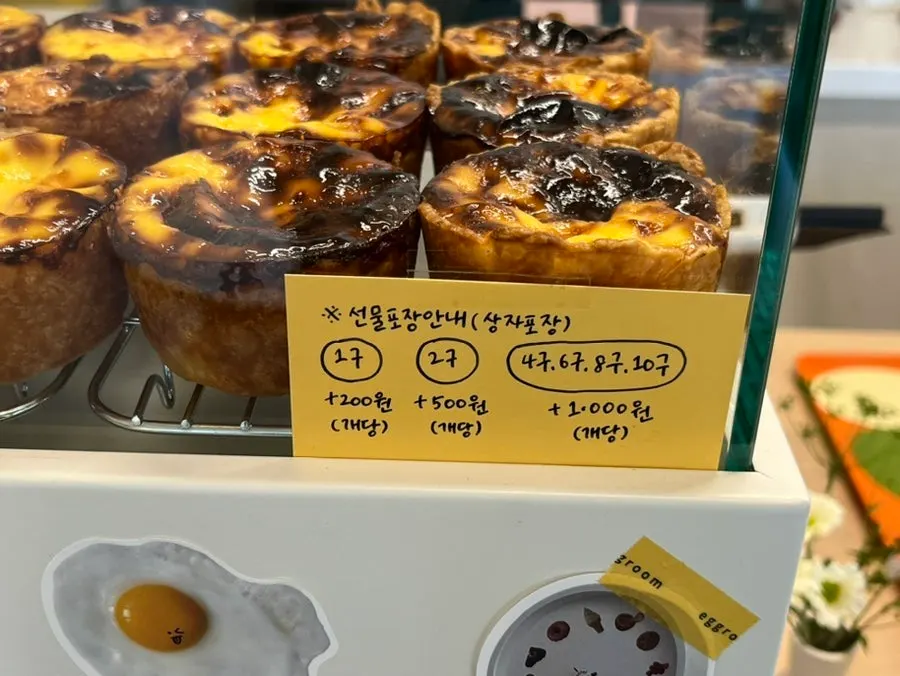 ※ 선물포장안내(상자포장)
1구 2구 4구.6구.8구.10구
+200원 +500원 +1.000원
(개당) (개당) (개당)
groom eggro